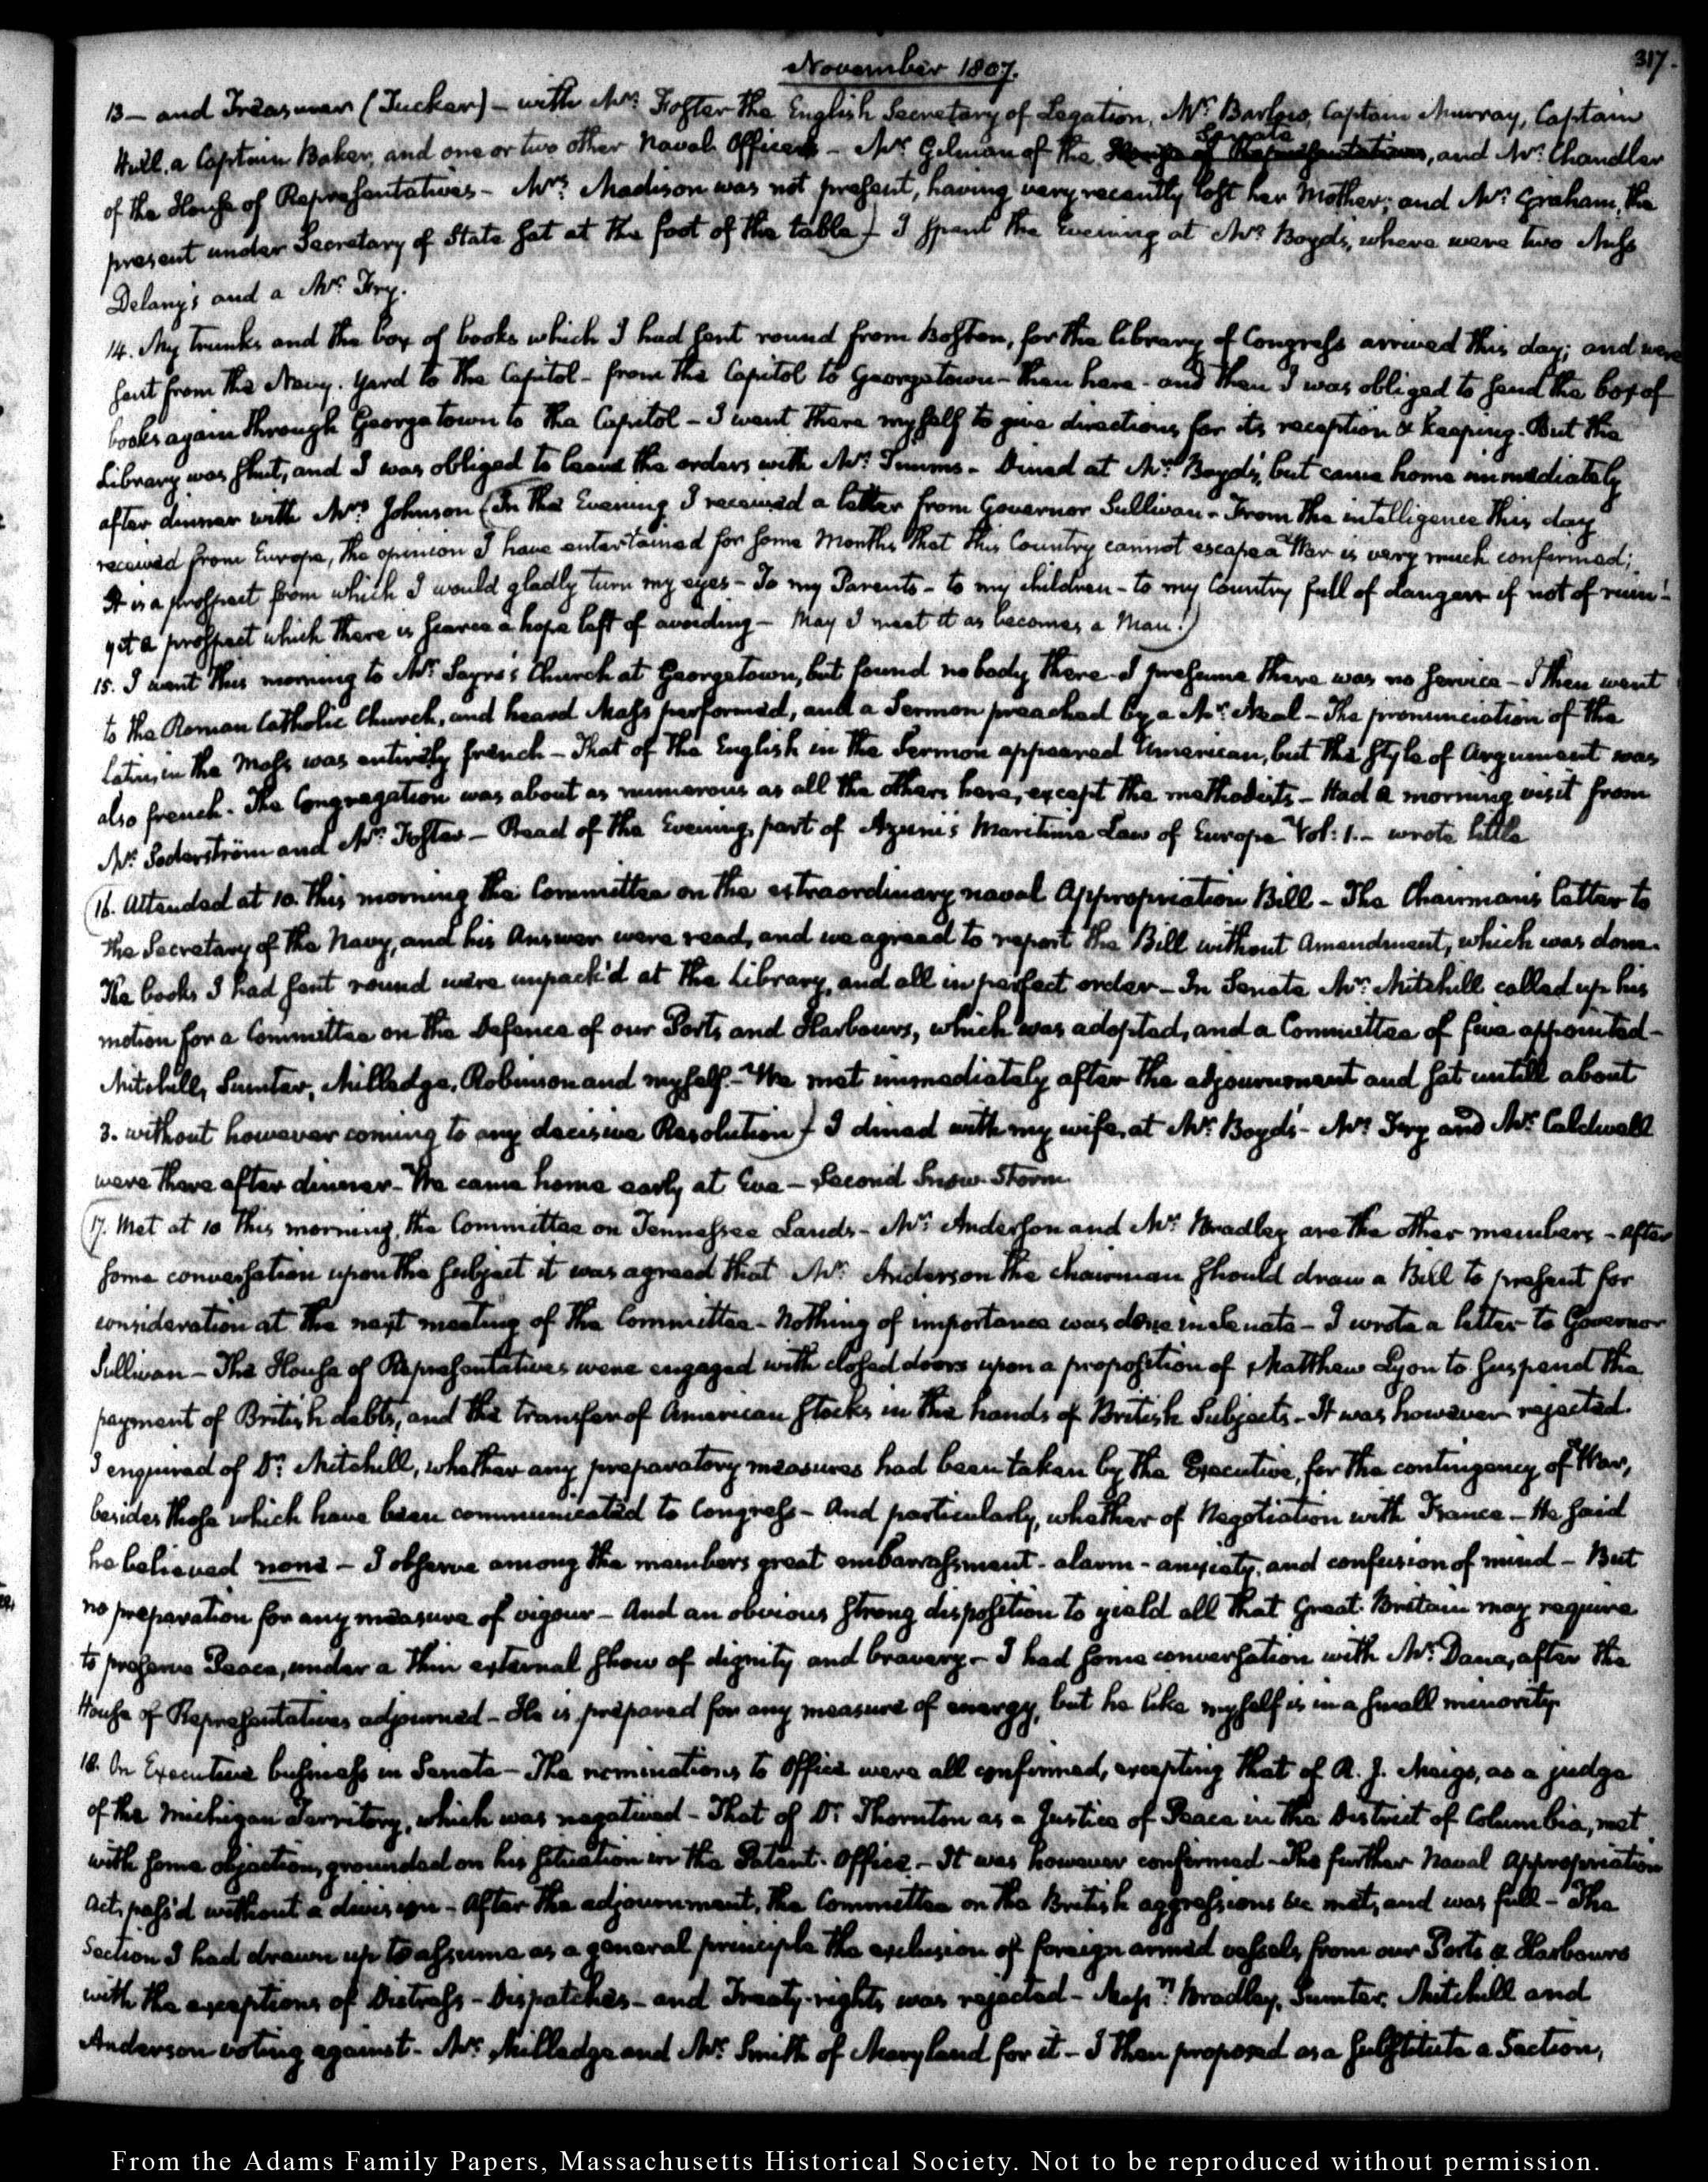 November 1807.
317.
13 — and Treasurer (Tucker) — with Mr. Foster the English Secretary of Legation, Mr. Barlow, Captain Murray, Captain
Hull, a Captain Baker, and one or two other Naval Officers — Mr. Gilman of the Senate, and Mr. Chandler
of the House of Representatives — Mrs. Madison was not present, having very recently lost her Mother; and Mr. Graham, the
present under Secretary of State sat at the foot of the table) — I spent the Evening at Mr. Boyd's, where were two Miss
Delany's and a Mr. Fry.
14. My trunks and the box of books which I had sent round from Boston, for the library of Congress arrived this day; and were
sent from the Navy-Yard to the Capitol — from the Capitol to Georgetown — then here — and then I was obliged to send the box of
books again through Georgetown to the Capitol — I went there myself to give directions for its reception & keeping. But the
Library was shut, and I was obliged to leave the orders with Mr. Timms — Dined at Mr. Boyd's, but came home immediately
after dinner with Mrs. Johnson (In the Evening I received a letter from Governor Sullivan — From the intelligence this day
received from Europe, the opinion I have entertained for some Months that this Country cannot escape a War is very much confirmed;
It is a prospect from which I would gladly turn my eyes — To my Parents — to my children — to my Country full of danger if not of ruin —
yet a prospect which there is scarce a hope left of avoiding — May I meet it as becomes a Man!)
15. I went this morning to Mr. Sayrs's Church at Georgetown, but found nobody there — I presume there was no service — I then went
to the Roman Catholic Church, and heard Mass performed, and a Sermon preached by a Mr. Neal — The pronunciation of the
latin, in the Mass was entirely french — That of the English in the Sermon appeared American, but the style of Argument was
also french. The Congregation was about as numerous as all the others here, except the methodists — Had a morning visit from
Mr. Soderström and Mr. Foster — Read of the Evening, part of Azuni's Maritime Law of Europe Vol: 1. — wrote little
(16. Attended at 10. this morning the Committee on the extraordinary naval Appropriation Bill — The Chairman's letter to
the Secretary of the Navy, and his Answer were read, and we agreed to report the Bill without Amendment, which was done.
The books I had sent round were unpack'd at the Library, and all in perfect order — In Senate Mr. Mitchill called up his
motion for a Committee on the Defence of our Ports and Harbours, which was adopted, and a Committee of five appointed —
Mitchill, Sumter, Milledge, Robinson and myself. — We met immediately after the adjournment and sat untill about
3. without however coming to any decisive Resolution) — I dined with my wife, at Mr. Boyd's — Mr. Fry and Mr. Caldwell
were there after dinner — We came home early at Eve — Second Snow-Storm.
(17. Met at 10 this morning, the Committee on Tennessee Lands — Mr. Anderson and Mr. Bradley are the other members — After
some conversation upon the subject it was agreed that Mr. Anderson the chairman should draw a Bill to present for
consideration at the next meeting of the Committee — Nothing of importance was done in Senate — I wrote a letter to Governor
Sullivan — The House of Representatives were engaged with closed doors upon a proposition of Matthew Lyon to suspend the
payment of British debts, and the transfer of American stocks in the hands of British Subjects — It was however rejected.
I enquired of Dr. Mitchill, whether any preparatory measures had been taken by the Executive, for the contingency of War,
besides those which have been communicated to Congress — And particularly, whether of Negotiation with France — He said
he believed none — I observe among the members great embarrassment — alarm — anxiety, and confusion of mind — But
no preparation for any measure of vigour — And an obvious strong disposition to yield all that Great-Britain may require
to preserve Peace, under a thin external show of dignity and bravery — I had some conversation with Mr. Dana, after the
House of Representatives adjourned — He is prepared for any measure of energy, but he like myself is in a small minority.
18. On Executive business in Senate — The nominations to Office were all confirmed, excepting that of R. J. Meigs, as a judge
of the Michigan Territory, which was negatived — That of Dr. Thornton as a Justice of Peace in the District of Columbia, met
with some objection, grounded on his situation in the Patent-Office — It was however confirmed — The further Naval Appropriation
Act, pass'd without a division — After the adjournment, the Committee on the British aggressions &c met, and was full — The
Section I had drawn up to assume as a general principle the exclusion of foreign armed vessels from our Ports & Harbours
with the exceptions of Distress — Dispatches — and Treaty-rights, was rejected — Messrs. Bradley, Sumter, Mitchill and
Anderson voting against — Mr. Milledge and Mr. Smith of Maryland for it — I then proposed as a substitute a Section,
From the Adams Family Papers, Massachusetts Historical Society. Not to be reproduced without permission.